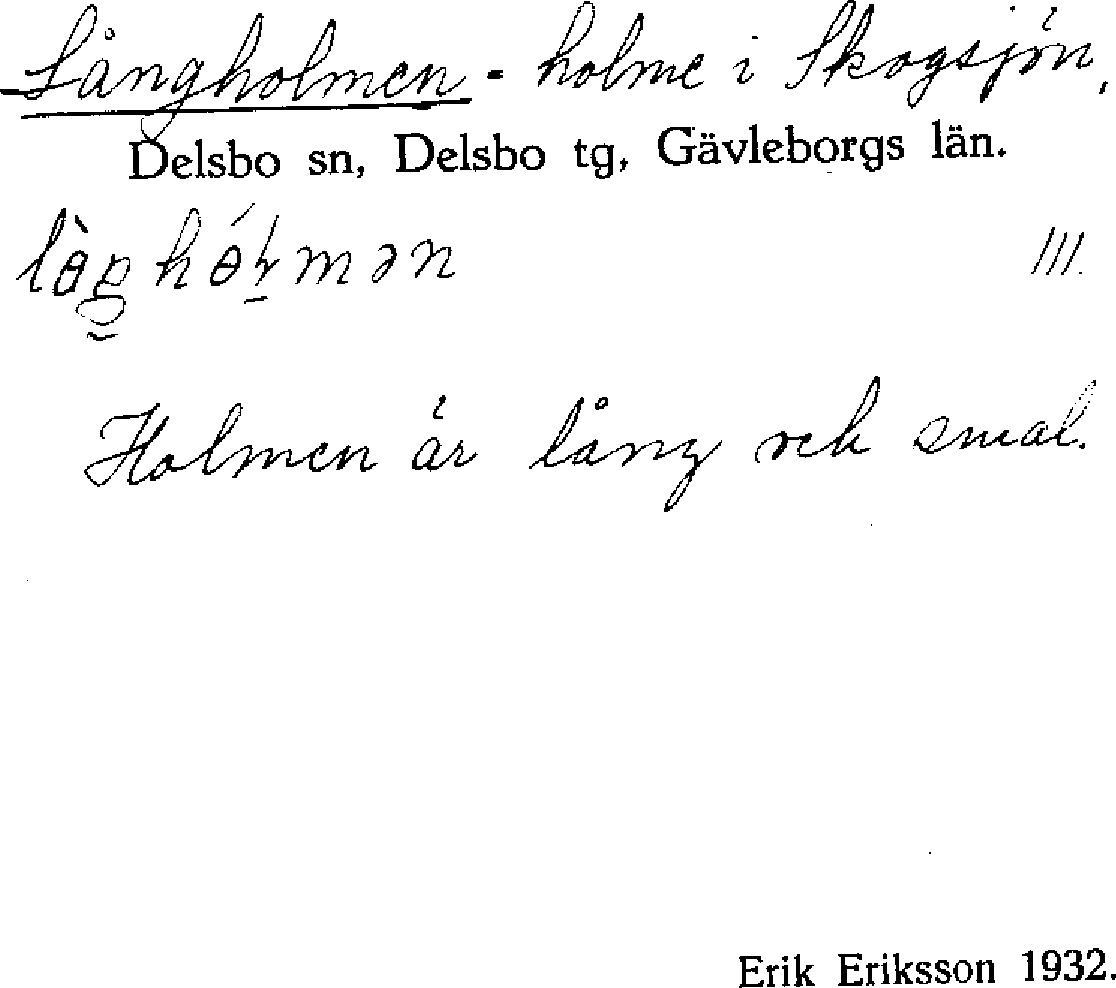 Långholmen - holme i Skogsjön,
Delsbo sn, Delsbo tg, Gävleborgs län.
III.
Holmen är lång och smal.
Erik Eriksson 1932.